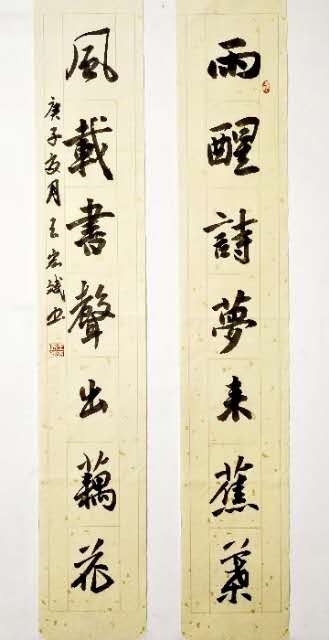 雨醒詩夢来蕉葉
風載書聲出藕花
庚子夏月王宏斌书